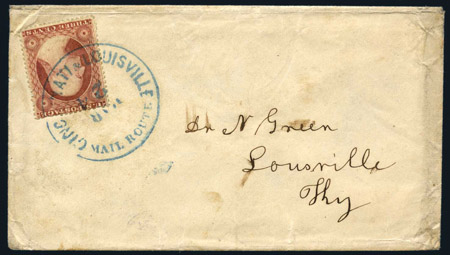 THREE CENTS
U.S. POSTAGE
CINCINNATI & LOUISVILLE
MAIL ROUTE
MAR
Dr N Green
Lousville
Ky